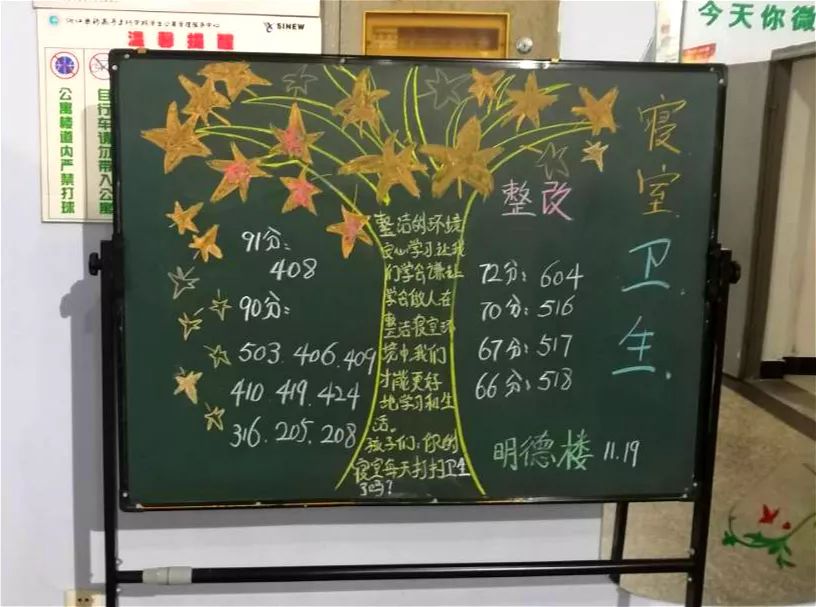 SINEW
温馨提醒
公寓楼道内严禁打球
自行车请勿带入公寓
今天你微
寝室卫生
整改
91分：
408
90分：
503.406.409
410.419.424
316.205.208
整洁的环境
安心学习让我
们学会谦让
学会做人在
整洁寝室环
境中，我们
才能更好
地学习和生
活。
孩子们：你的
寝室每天打扫卫生
了吗？
72分：604
70分：516
67分：517
66分：518
明德楼 11.19